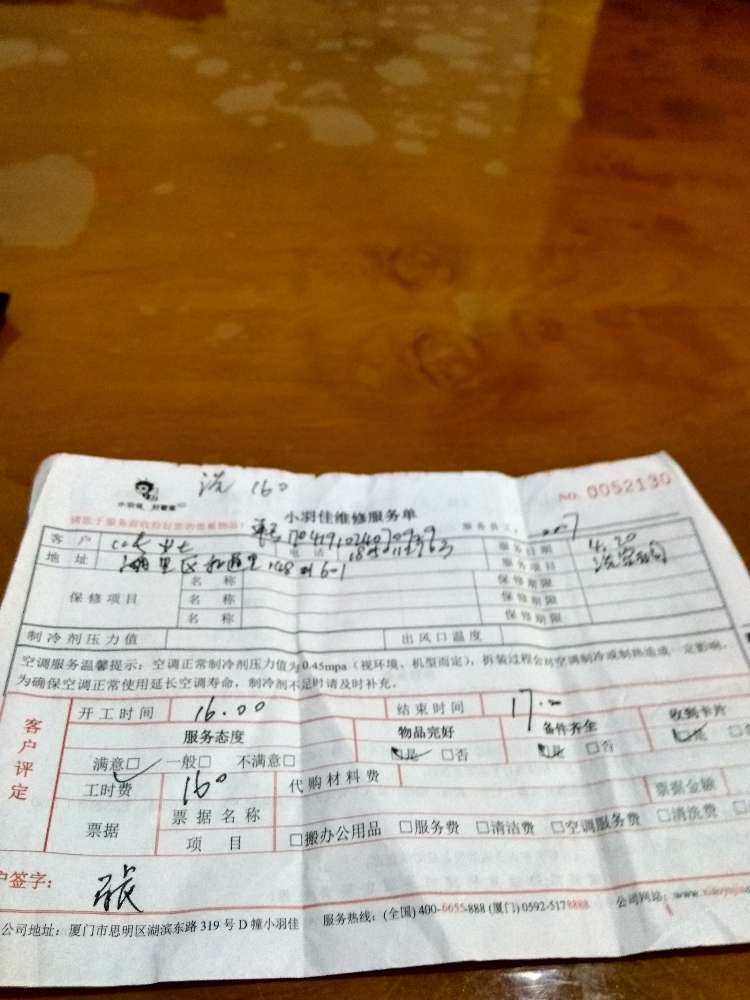 洗 160
NO. 0052130
小羽佳 好管家
小羽佳维修服务单
请您于服务前收捡好您的贵重物品！
客户 电话 服务日期 4.20
地址 148 6-1 服务项目 洗空调
保修项目 名称 保修期限
名称 保修期限
名称 保修期限
制冷剂压力值 出风口温度
空调服务温馨提示：空调正常制冷剂压力值为0.45mpa（视环境、机型而定），拆装过程会对空调制冷或制热造成一定影响，
为确保空调正常使用延长空调寿命，制冷剂不足时请及时补充。
客户评定
开工时间 16.00 结束时间 17.00
服务态度 物品完好 备件齐全 收到卡片
满意□ 一般□ 不满意□ □是 □否 □是 □否 □是 □否
工时费 160 代购材料费
票据 票据名称 票据金额
项目 □搬办公用品 □服务费 □清洁费 □空调服务费 □清洗费
户签字： 张
公司地址：厦门市思明区湖滨东路 319 号 D 幢小羽佳 服务热线：(全国) 400-6655-888 (厦门) 0592-5178888 公司网站：